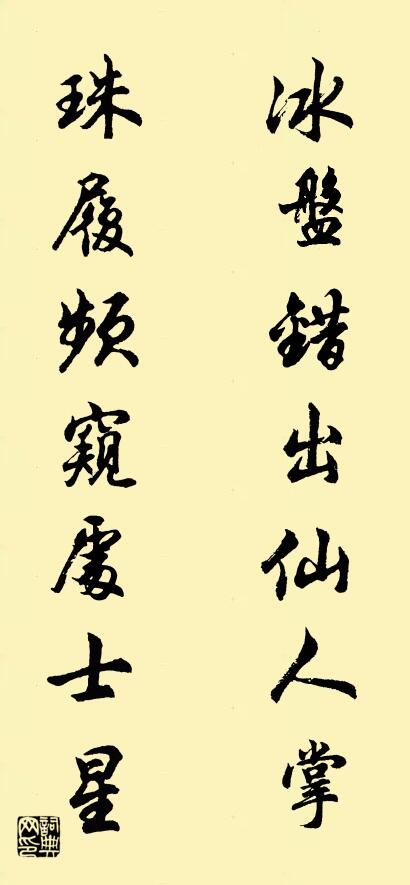 冰盤錯出仙人掌
珠履頻窺處士星
詞典网印